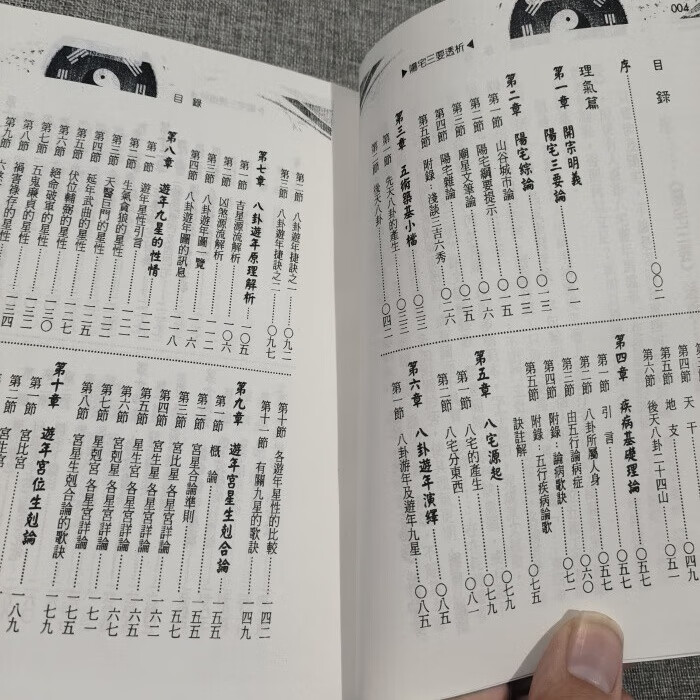 004
▶陽宅三要透析◀
目錄
序……〇〇二
理氣篇
第一章 開宗明義
陽宅三要論……〇一一
第二章 陽宅綜論……〇一三
第一節 山谷城市論……〇一五
第二節 陽宅綱要提示……〇一六
第三節 廟星文筆論
第四節 陽宅雜論……〇二六
第五節 附錄：淺談三吉六秀
第三章 五術築基小檔……〇三三
第一節 先天八卦的產生……〇三三
第二節 後天八卦……〇四二
第四節 天干……〇四九
第五節 地支
第六節 後天八卦二十四山
第四章 疾病基礎理論……〇五七
第一節 引言……〇五七
第二節 八卦所屬人身……〇六〇
第三節 由五行論病症
第四節 附錄：論病歌訣……〇七一
第五節 附錄：五行疾病論歌
訣註解……〇七五
第五章 八宅源起……〇七九
第一節 八宅的產生……〇七九
第二節 八宅分東西……〇八一
第六章 八卦遊年演繹……〇八五
第一節 八卦游年及遊年九星……〇八五
目錄
第二節 八卦遊年捷訣之一……〇九二
第三節 八卦遊年捷訣之二……〇九七
第七章 八卦遊年原理解析……一〇五
第一節 吉星源流解析……一〇六
第二節 凶煞源流解析……一一二
第三節 八卦遊年圖一覽……一一六
第四節 八卦遊年圖的訊息……一一八
第八章 遊年九星的性情……一二一
第一節 遊年星性引言……一二一
第二節 生氣貪狼的星性……一二二
第三節 天醫巨門的星性……一二四
第四節 延年武曲的星性……一二五
第五節 伏位輔弼的星性……一二七
第六節 絕命破軍的星性……一三〇
第七節 五鬼廉貞的星性……一三二
第八節 禍害祿存的星性……一三四
第九節
第十節 各遊年星性的比較……一四二
第十一節 有關九星的歌訣……一四九
第九章 遊年宮星生剋合論……一五五
第一節 概論……一五五
第二節 宮星合論準則……一五七
第三節 宮比星 各星宮詳論……一六二
第四節 宮生星 各星宮詳論……一六五
第五節 星生宮 各星宮詳論……一六七
第六節 宮剋星 各星宮詳論……一七一
第七節 星剋宮 各星宮詳論……一七五
第八節 宮星生剋合論的歌訣……一七九
第十章 遊年宮位生剋論
第一節 宮比宮……一八九
第二節 宮生宮